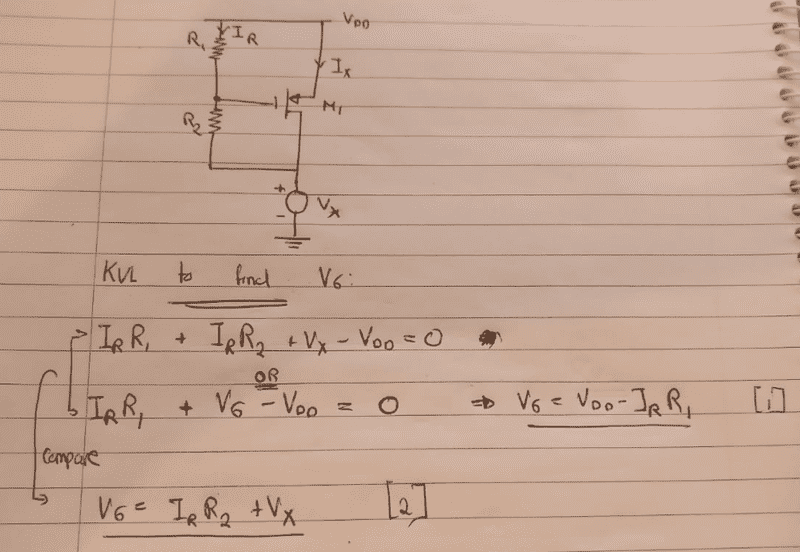 V_DD
R_1 I_R
I_x
M_1
R_2
+
V_x
-
KVL to find V_G:
I_R R_1 + I_R R_2 + V_x - V_DD = 0
OR
I_R R_1 + V_G - V_DD = 0 ⇒ V_G = V_DD - I_R R_1 [1]
Compare
V_G = I_R R_2 + V_x [2]